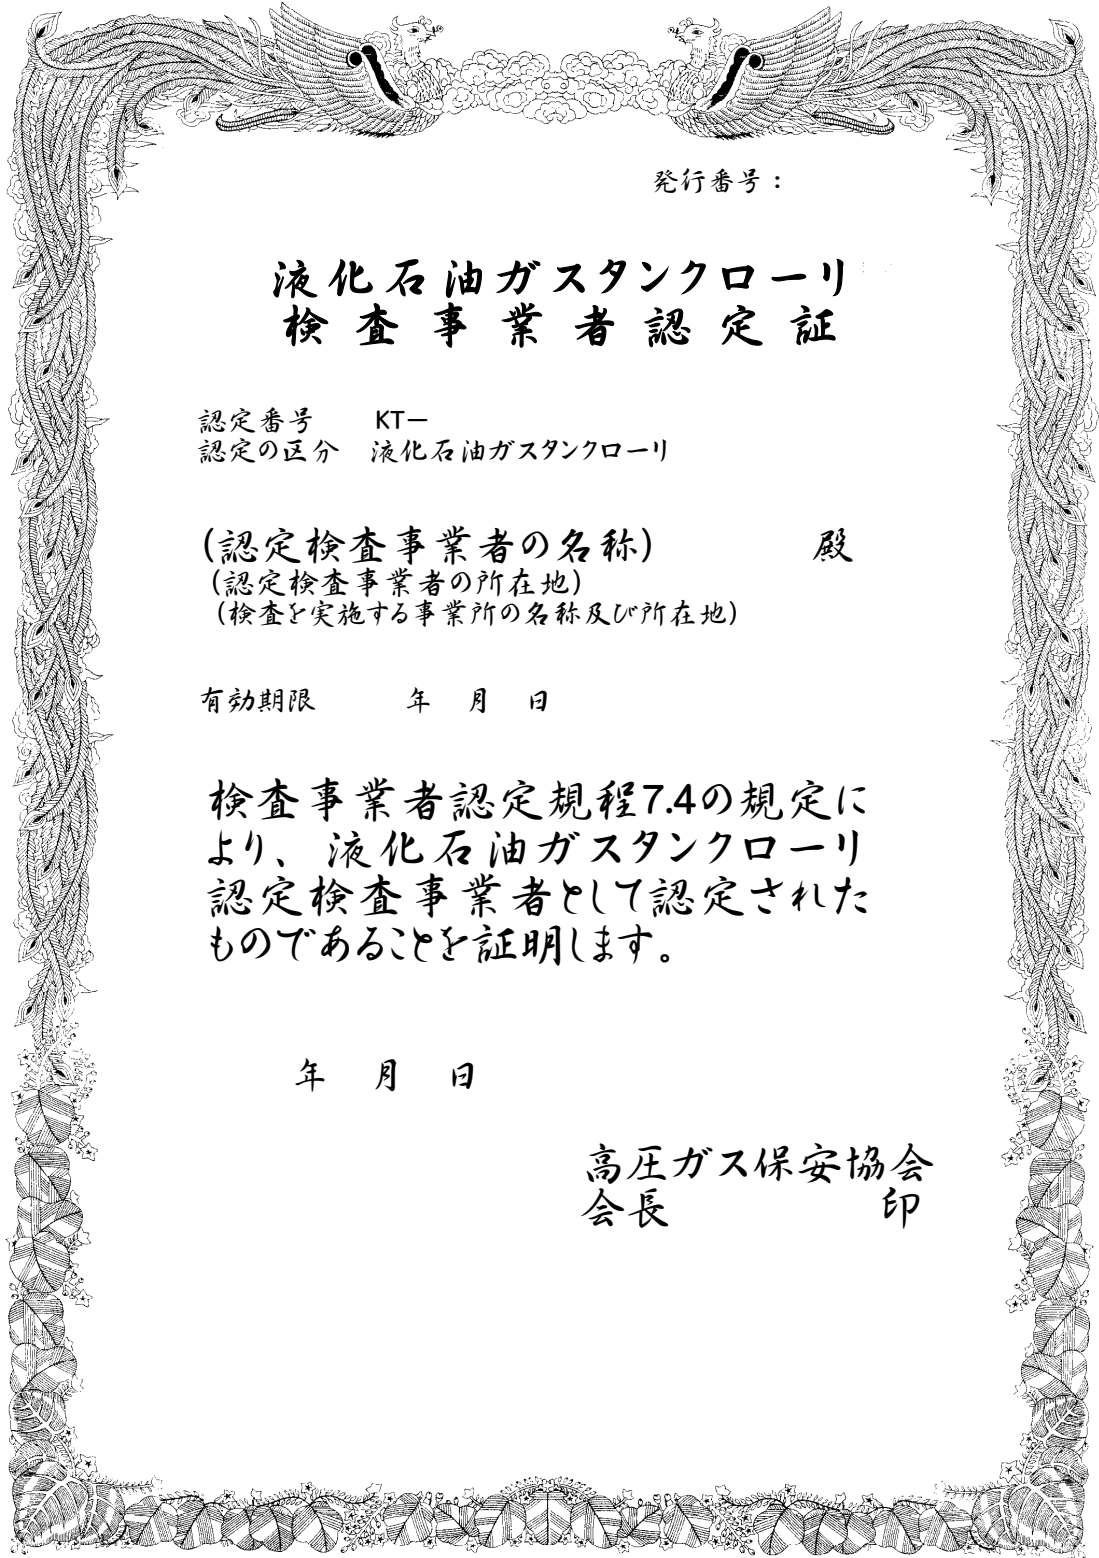 発行番号：
液化石油ガスタンクローリ
検査事業者認定証
認定番号　　KT－
認定の区分　液化石油ガスタンクローリ
（認定検査事業者の名称）　　　　殿
（認定検査事業者の所在地）
（検査を実施する事業所の名称及び所在地）
有効期限　　　年　月　日
検査事業者認定規程7.4の規定に
より、液化石油ガスタンクローリ
認定検査事業者として認定された
ものであることを証明します。
年　月　日
高圧ガス保安協会
会長　　　　　印